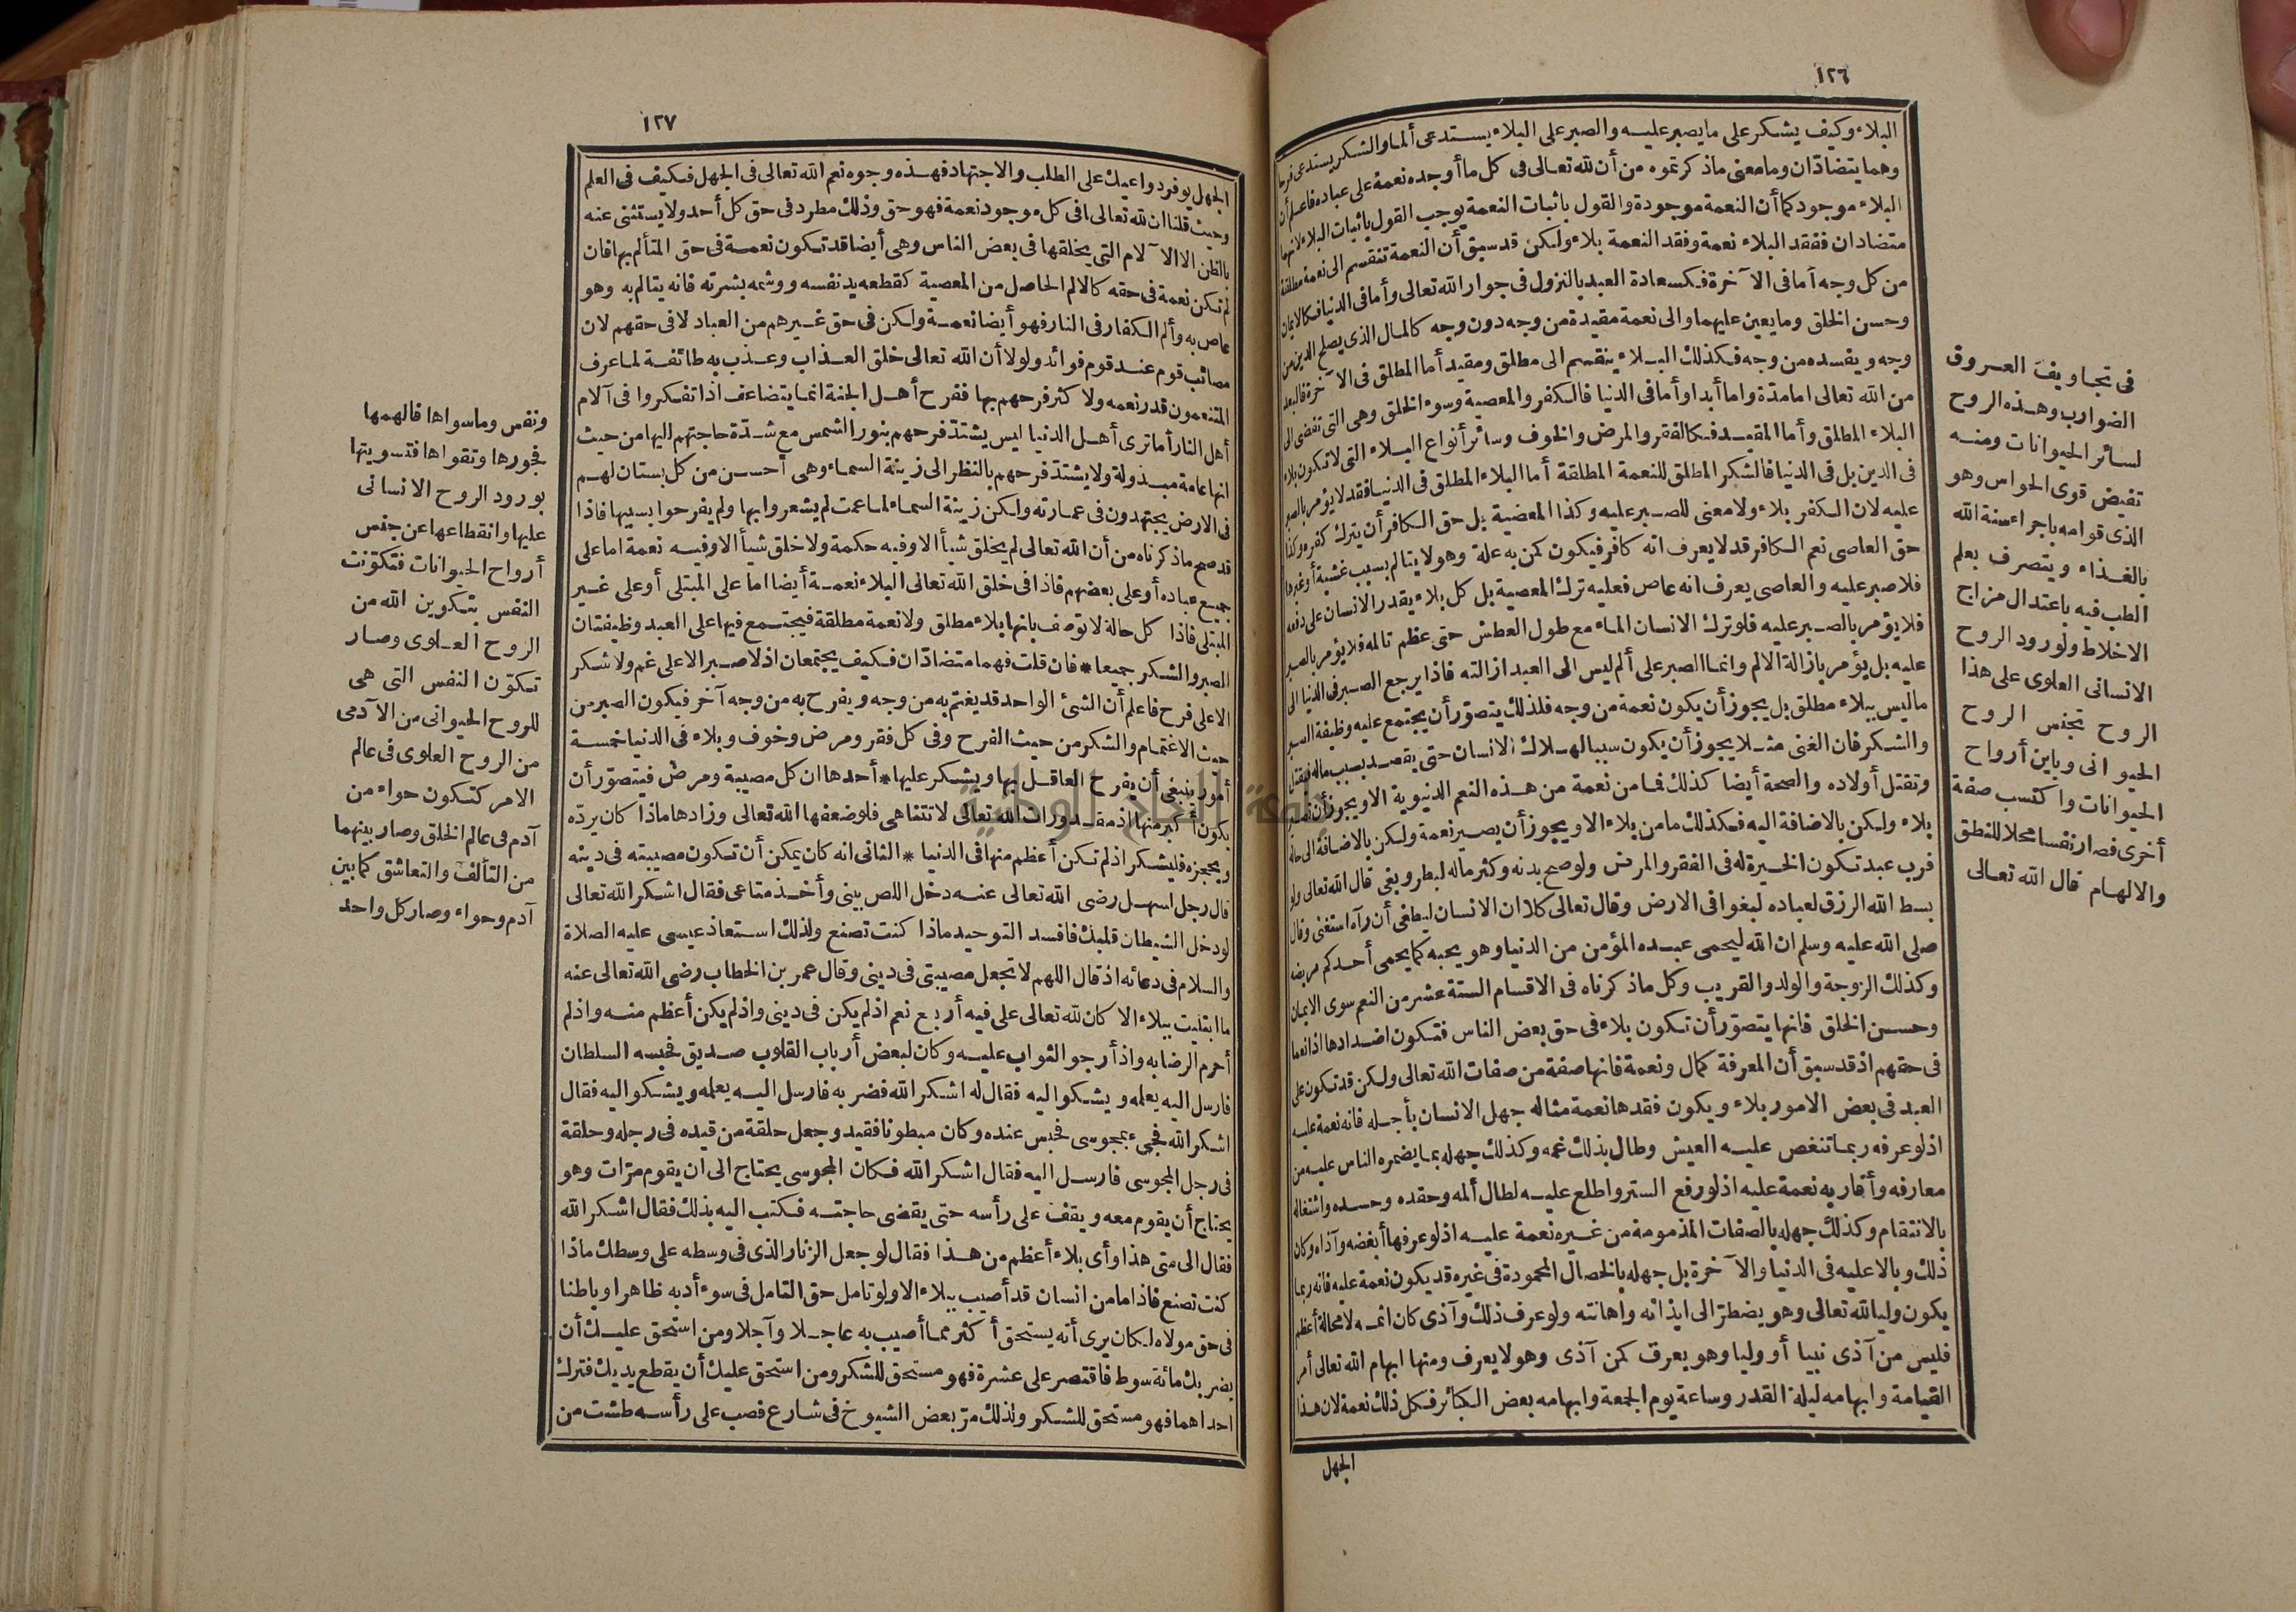 ١٢٦
البلاء وكيف يشكر على ما يصبر عليه والصبر على البلاء يستدعى ألما والشكر يستدعى فرحا
وهما يتضادّان وما معنى ماذكرتموه من أن لله تعالى فى كل ما أوجده نعمة على عباده فاعلم أن
البلاء موجود كما أن النعمة موجودة والقول باثبات النعمة يوجب القول باثبات البلاء لانهما
متضادان ففقد البلاء نعمة وفقد النعمة بلاء ولكن قد سبق أن النعمة تنقسم الى نعمة مطلقة
من كل وجه أما فى الآخرة فكسعادة العبد بالنزول فى جوار الله تعالى وأما فى الدنيا فكالايمان
وحسن الخلق وما يعين عليهما والى نعمة مقيدة من وجه دون وجه كالمال الذى يصلح الدين من
وجه ويفسده من وجه فكذلك البلاء ينقسم الى مطلق ومقيد أما المطلق فى الآخرة فالبعد
من الله تعالى اما مدّة واما أبدا وأما فى الدنيا فالكفر والمعصية وسوء الخلق وهى التى تفضى الى
البلاء المطلق وأما المقيد فكالفقر والمرض والخوف وسائر أنواع البلاء التى لاتكون بلاء
فى الدين بل فى الدنيا فالشكر المطلق للنعمة المطلقة أما البلاء المطلق فى الدنيا فقد لا يؤمر بالصبر
عليه لان الكفر بلاء ولا معنى للصبر عليه وكذا المعصية بل حق الكافر أن يترك كفره وكذا
حق العاصى نعم الكافر قد لا يعرف انه كافر فيكون كمن به علة وهو لا يتالم بسبب غشية أو غيرها
فلا صبر عليه والعاصى يعرف انه عاص فعليه ترك المعصية بل كل بلاء يقدر الانسان على دفعه
فلا يؤمر بالصبر عليه فلو ترك الانسان الماء مع طول العطش حتى عظم تالمه فلا يؤمر بالصبر
عليه بل يؤمر بازالة الالم وانما الصبر على ألم ليس الى العبد ازالته فاذا يرجع الصبر فى الدنيا الى
ماليس ببلاء مطلق بل يجوز أن يكون نعمة من وجه فلذلك يتصوّر أن يجتمع عليه وظيفة الصبر
والشكر فان الغنى مثلا يجوز أن يكون سببا لهلاك الانسان حتى يقصد بسبب ماله فيقتل
وتقتل أولاده والصحة أيضا كذلك فما من نعمة من هذه النعم الدنيوية الا ويجوز أن تصير
بلاء ولكن بالاضافة اليه فكذلك ما من بلاء الا ويجوز أن يصير نعمة ولكن بالاضافة الى حاله
فرب عبد تكون الخيرة له فى الفقر والمرض ولو صح بدنه وكثر ماله لبطر وبغى قال الله تعالى ولو
بسط الله الرزق لعباده لبغوا فى الارض وقال تعالى كلا ان الانسان ليطغى أن رآه استغنى وقال
صلى الله عليه وسلم ان الله ليحمى عبده المؤمن من الدنيا وهو يحبه كما يحمى أحدكم مريضه
وكذلك الزوجة والولد والقريب وكل ماذكرناه فى الاقسام الستة عشر من النعم سوى الايمان
وحسن الخلق فانها يتصوّر أن تكون بلاء فى حق بعض الناس فتكون اضدادها اذا نعما
فى حقهم اذ قد سبق أن المعرفة كمال ونعمة فانها صفة من صفات الله تعالى ولكن قد تكون على
العبد فى بعض الامور بلاء ويكون فقدها نعمة مثاله جهل الانسان بأجله فانه نعمة عليه
اذ لو عرفه ربما تنغص عليه العيش وطال بذلك غمه وكذلك جهله بما يضمره الناس عليه من
معارفه وأقاربه نعمة عليه اذ لو رفع الستر واطلع عليه لطال ألمه وحقده وحسده واشتغاله
بالانتقام وكذلك جهله بالصفات المذمومة من غيره نعمة عليه اذ لو عرفها أبغضه وآذاه وكان
ذلك وبالا عليه فى الدنيا والآخرة بل جهله بالخصال المحمودة فى غيره قد يكون نعمة عليه فانه ربما
يكون وليا لله تعالى وهو يضطرّ الى ايذائه واهانته ولو عرف ذلك وآذى كان اثمه لا محالة أعظم
فليس من آذى نبيا أو وليا وهو يعرف كمن آذى وهو لا يعرف ومنها ابهام الله تعالى أمر
القيامة وابهامه ليلة القدر وساعة يوم الجمعة وابهامه بعض الكبائر فكل ذلك نعمة لان هذا
الجهل
فى تجاويف العروق
الضوارب وهذه الروح
لسائر الحيوانات ومنه
تفيض قوى الحواس وهو
الذى قوامه باجراء سنة الله
بالغذاء ويتصرف بعلم
الطب فيه باعتدال مزاج
الاخلاط ولورود الروح
الانسانى العلوى على هذا
الروح تجنس الروح
الحيوانى وباين أرواح
الحيوانات واكتسب صفة
أخرى فصار نفسا محلا للنطق
والالهام قال الله تعالى
١٢٧
الجهل يوفر دواعيك على الطلب والاجتهاد فهذه وجوه نعم الله تعالى فى الجهل فكيف فى العلم
وحيث قلنا ان لله تعالى فى كل موجود نعمة فهو حق وذلك مطرد فى حق كل أحد ولا يستثنى عنه
بالظن الا الآلام التى يخلقها فى بعض الناس وهى أيضا قد تكون نعمة فى حق المتألم بها فان
لم تكن نعمة فى حقه كالالم الحاصل من المعصية كقطعه يد نفسه ووشمه بشرته فانه يتالم به وهو
عاص به وألم الكفار فى النار فهو أيضا نعمة ولكن فى حق غيرهم من العباد لا فى حقهم لان
مصائب قوم عند قوم فوائد ولولا أن الله تعالى خلق العذاب وعذب به طائفة لما عرف
المتنعمون قدر نعمه ولا كثر فرحهم بها ففرح أهل الجنة انما يتضاعف اذا تفكروا فى آلام
أهل النار أما ترى أهل الدنيا ليس يشتدّ فرحهم بنور الشمس مع شدّة حاجتهم اليها من حيث
انها عامة مبذولة ولا يشتدّ فرحهم بالنظر الى زينة السماء وهى أحسن من كل بستان لهم
فى الارض يجتهدون فى عمارته ولكن زينة السماء لما عمت لم يشعروا بها ولم يفرحوا بسببها فاذا
قد صح ماذكرناه من أن الله تعالى لم يخلق شيأ الا وفيه حكمة ولا خلق شيأ الا وفيه نعمة اما على
جميع عباده أو على بعضهم فاذا فى خلق الله تعالى البلاء نعمة أيضا اما على المبتلى أو على غير
المبتلى فاذا كل حالة لا توصف بانها بلاء مطلق ولا نعمة مطلقة فيجتمع فيها على العبد وظيفتان
الصبر والشكر جميعا * فان قلت فهما متضادّان فكيف يجتمعان اذ لا صبر الا على غم ولا شكر
الا على فرح فاعلم أن الشئ الواحد قد يغتم به من وجه ويفرح به من وجه آخر فيكون الصبر من
حيث الاغتمام والشكر من حيث الفرح وفى كل فقر ومرض وخوف وبلاء فى الدنيا خمسة
أمور ينبغى أن يفرح العاقل بها ويشكر عليها * أحدها ان كل مصيبة ومرض فيتصوّر أن
يكون أكبر منها اذ مقدورات الله تعالى لا تتناهى فلو ضعفها الله تعالى وزادها ماذا كان يردّه
ويحجزه فليشكر اذ لم تكن أعظم منها فى الدنيا * الثانى انه كان يمكن أن تكون مصيبته فى دينه
قال رجل لسهل رضى الله تعالى عنه دخل اللص بيتى وأخذ متاعى فقال اشكر الله تعالى
لو دخل الشيطان قلبك فافسد التوحيد ماذا كنت تصنع ولذلك استعاذ عيسى عليه الصلاة
والسلام فى دعائه اذ قال اللهم لا تجعل مصيبتى فى دينى وقال عمر بن الخطاب رضى الله تعالى عنه
ما ابتليت ببلاء الا كان لله تعالى على فيه أربع نعم اذ لم يكن فى دينى واذ لم يكن أعظم منه واذ لم
أحرم الرضا به واذ أرجو الثواب عليه وكان لبعض أرباب القلوب صديق فحبسه السلطان
فارسل اليه يعلمه ويشكو اليه فقال له اشكر الله فضربه فارسل اليه يعلمه ويشكو اليه فقال
اشكر الله فجىء بمجوسى فحبس عنده وكان مبطونا فقيد وجعل حلقة من قيده فى رجله وحلقة
فى رجل المجوسى فارسل اليه فقال اشكر الله فكان المجوسى يحتاج الى ان يقوم مرّات وهو
يحتاج أن يقوم معه ويقف على رأسه حتى يقضى حاجته فكتب اليه بذلك فقال اشكر الله
فقال الى متى هذا وأى بلاء أعظم من هذا فقال لو جعل الزنار الذى فى وسطه على وسطك ماذا
كنت تصنع فاذا ما من انسان قد أصيب ببلاء الا ولو تامل حق التامل فى سوء أدبه ظاهرا وباطنا
فى حق مولاه لكان يرى أنه يستحق أكثر مما أصيب به عاجلا وآجلا ومن استحق عليك أن
يضربك مائة سوط فاقتصر على عشرة فهو مستحق للشكر ومن استحق عليك أن يقطع يديك فترك
احداهما فهو مستحق للشكر ولذلك مرّ بعض الشيوخ فى شارع فصب على رأسه طشت من
ونفس وماسواها فالهمها
فجورها وتقواها فتسويتها
بورود الروح الانسانى
عليها وانقطاعها عن جنس
أرواح الحيوانات فتكوّنت
النفس بتكوين الله من
الروح العلوى وصار
تكوّن النفس التى هى
للروح الحيوانى من الآدمى
من الروح العلوى فى عالم
الامر كتكون حواء من
آدم فى عالم الخلق وصار بينهما
من التألف والتعاشق كما بين
آدم وحواء وصار كل واحد